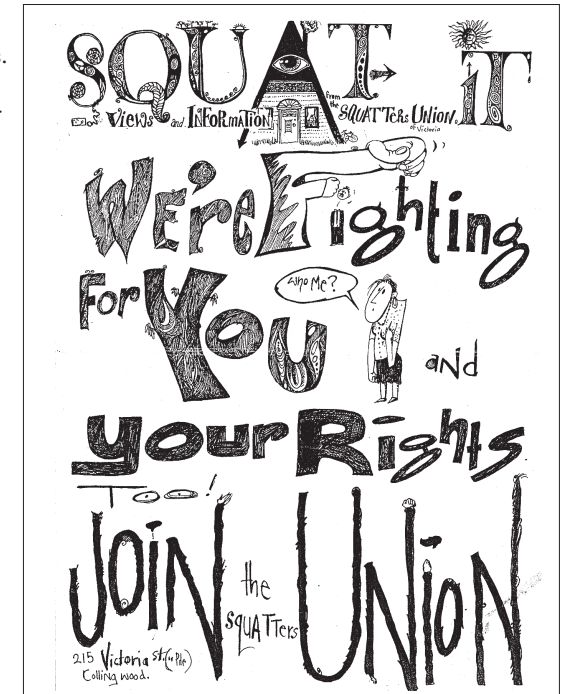 SQUAT iT
Views and INFORMATION from the SQUATTERS UNION of Victoria
WE'RE Fighting
For You
Who Me?
and
your Rights
Too!
JOiN the SQUATTers UNiON
215 Victoria st.
Collingwood.